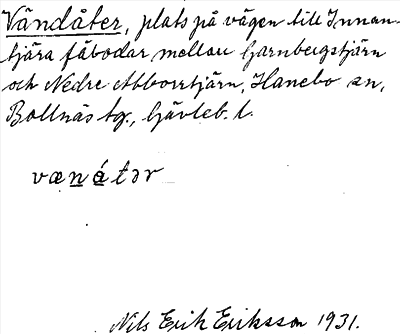 Vändåter, plats på vägen till Innan-
tjära fäbodar mellan Garnbergstjärn
och Nedre Abborrtjärn, Hanebo sn,
Bollnäs tg., Gävleb. l.
væṉá̱tər
Nils Erik Eriksson 1931.